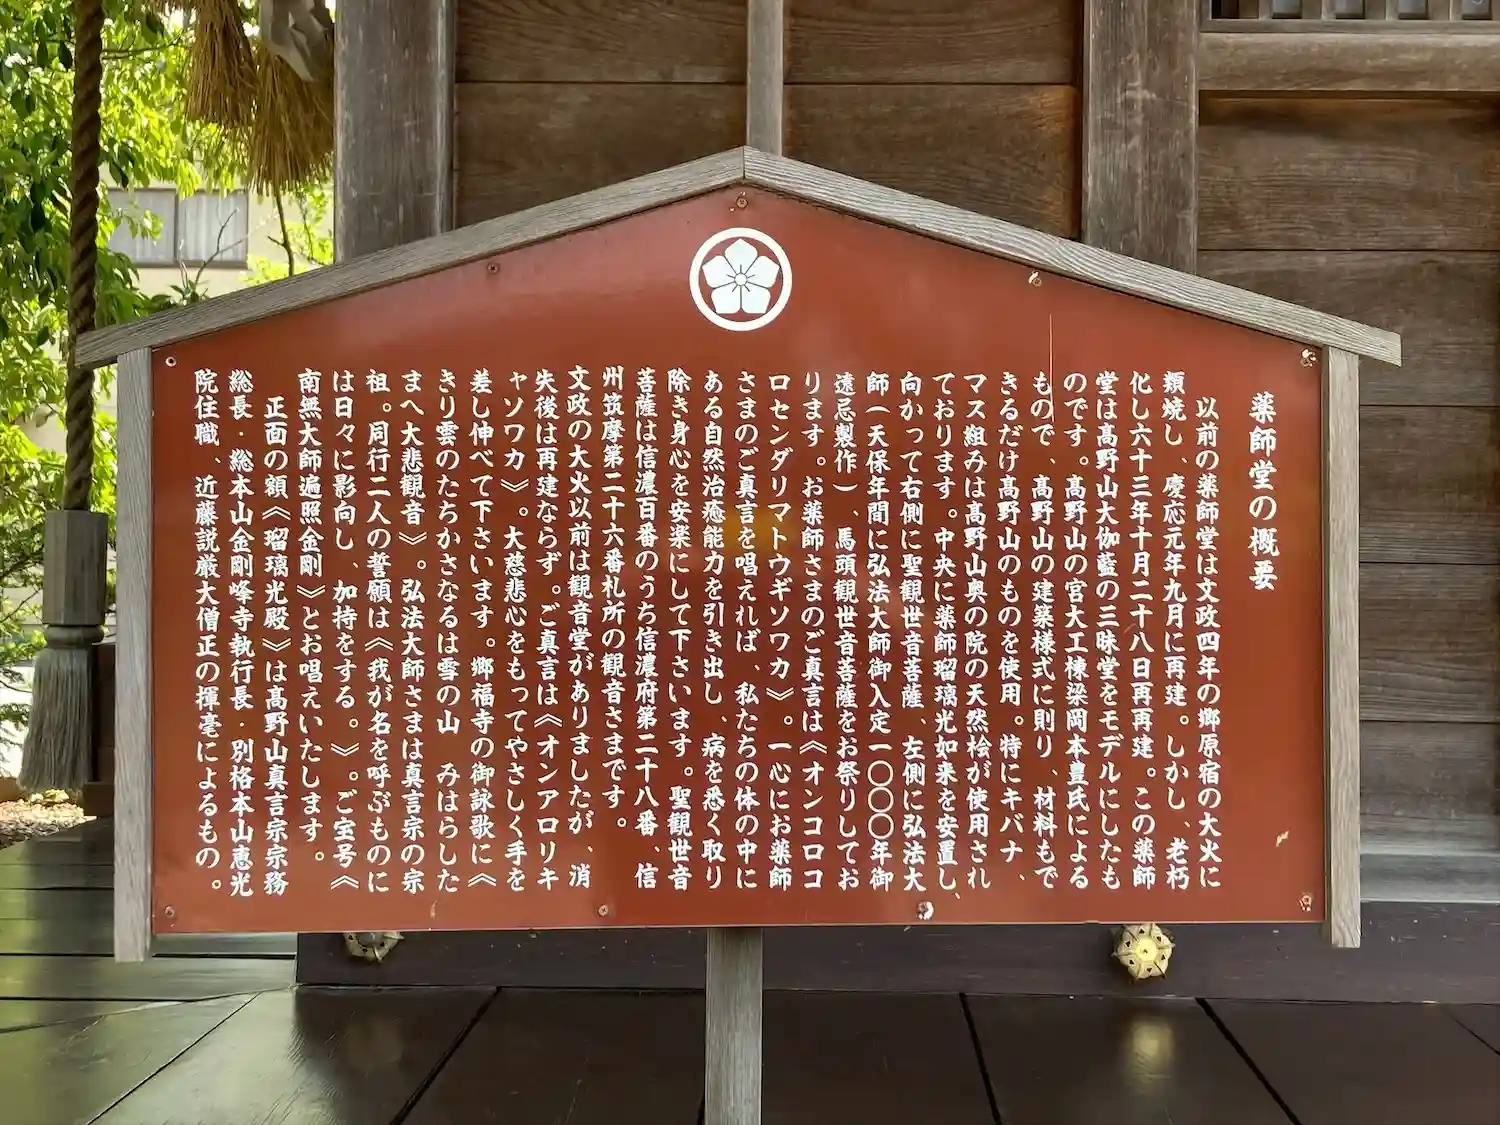 薬師堂の概要
以前の薬師堂は文政四年の郷原宿の大火に
類焼し、慶応元年九月に再建。しかし、老朽
化し六十三年十月二十八日再再建。この薬師
堂は高野山大伽藍の三昧堂をモデルにしたも
のです。高野山の宮大工棟梁岡本豊氏による
もので、高野山の建築様式に則り、材料もで
きるだけ高野山のものを使用。特にキバナ、
マス組みは高野山奥の院の天然桧が使用され
ております。中央に薬師瑠璃光如来を安置し、
向かって右側に聖観世音菩薩、左側に弘法大
師(天保年間に弘法大師御入定一〇〇〇年御
遠忌製作)、馬頭観世音菩薩をお祭りしてお
ります。お薬師さまのご真言は《オンコロコ
ロセンダリマトウギソワカ》。一心にお薬師
さまのご真言を唱えれば、私たちの体の中に
ある自然治癒能力を引き出し、病を悉く取り
除き身心を安楽にして下さいます。聖観世音
菩薩は信濃百番のうち信濃府第二十八番、信
州筑摩第二十六番札所の観音さまです。
文政の大火以前は観音堂がありましたが、消
失後は再建ならず。ご真言は《オンアロリキ
ャソワカ》。大慈悲心をもってやさしく手を
差し伸べて下さいます。郷福寺の御詠歌に《
きり雲のたちかさなるは雪の山　みはらした
まへ大悲観音》。弘法大師さまは真言宗の宗
祖。同行二人の誓願は《我が名を呼ぶものに
は日々に影向し、加持をする。》。ご宝号《
南無大師遍照金剛》とお唱えいたします。
正面の額《瑠璃光殿》は高野山真言宗宗務
総長・総本山金剛峰寺執行長・別格本山恵光
院住職、近藤説巌大僧正の揮毫によるもの。